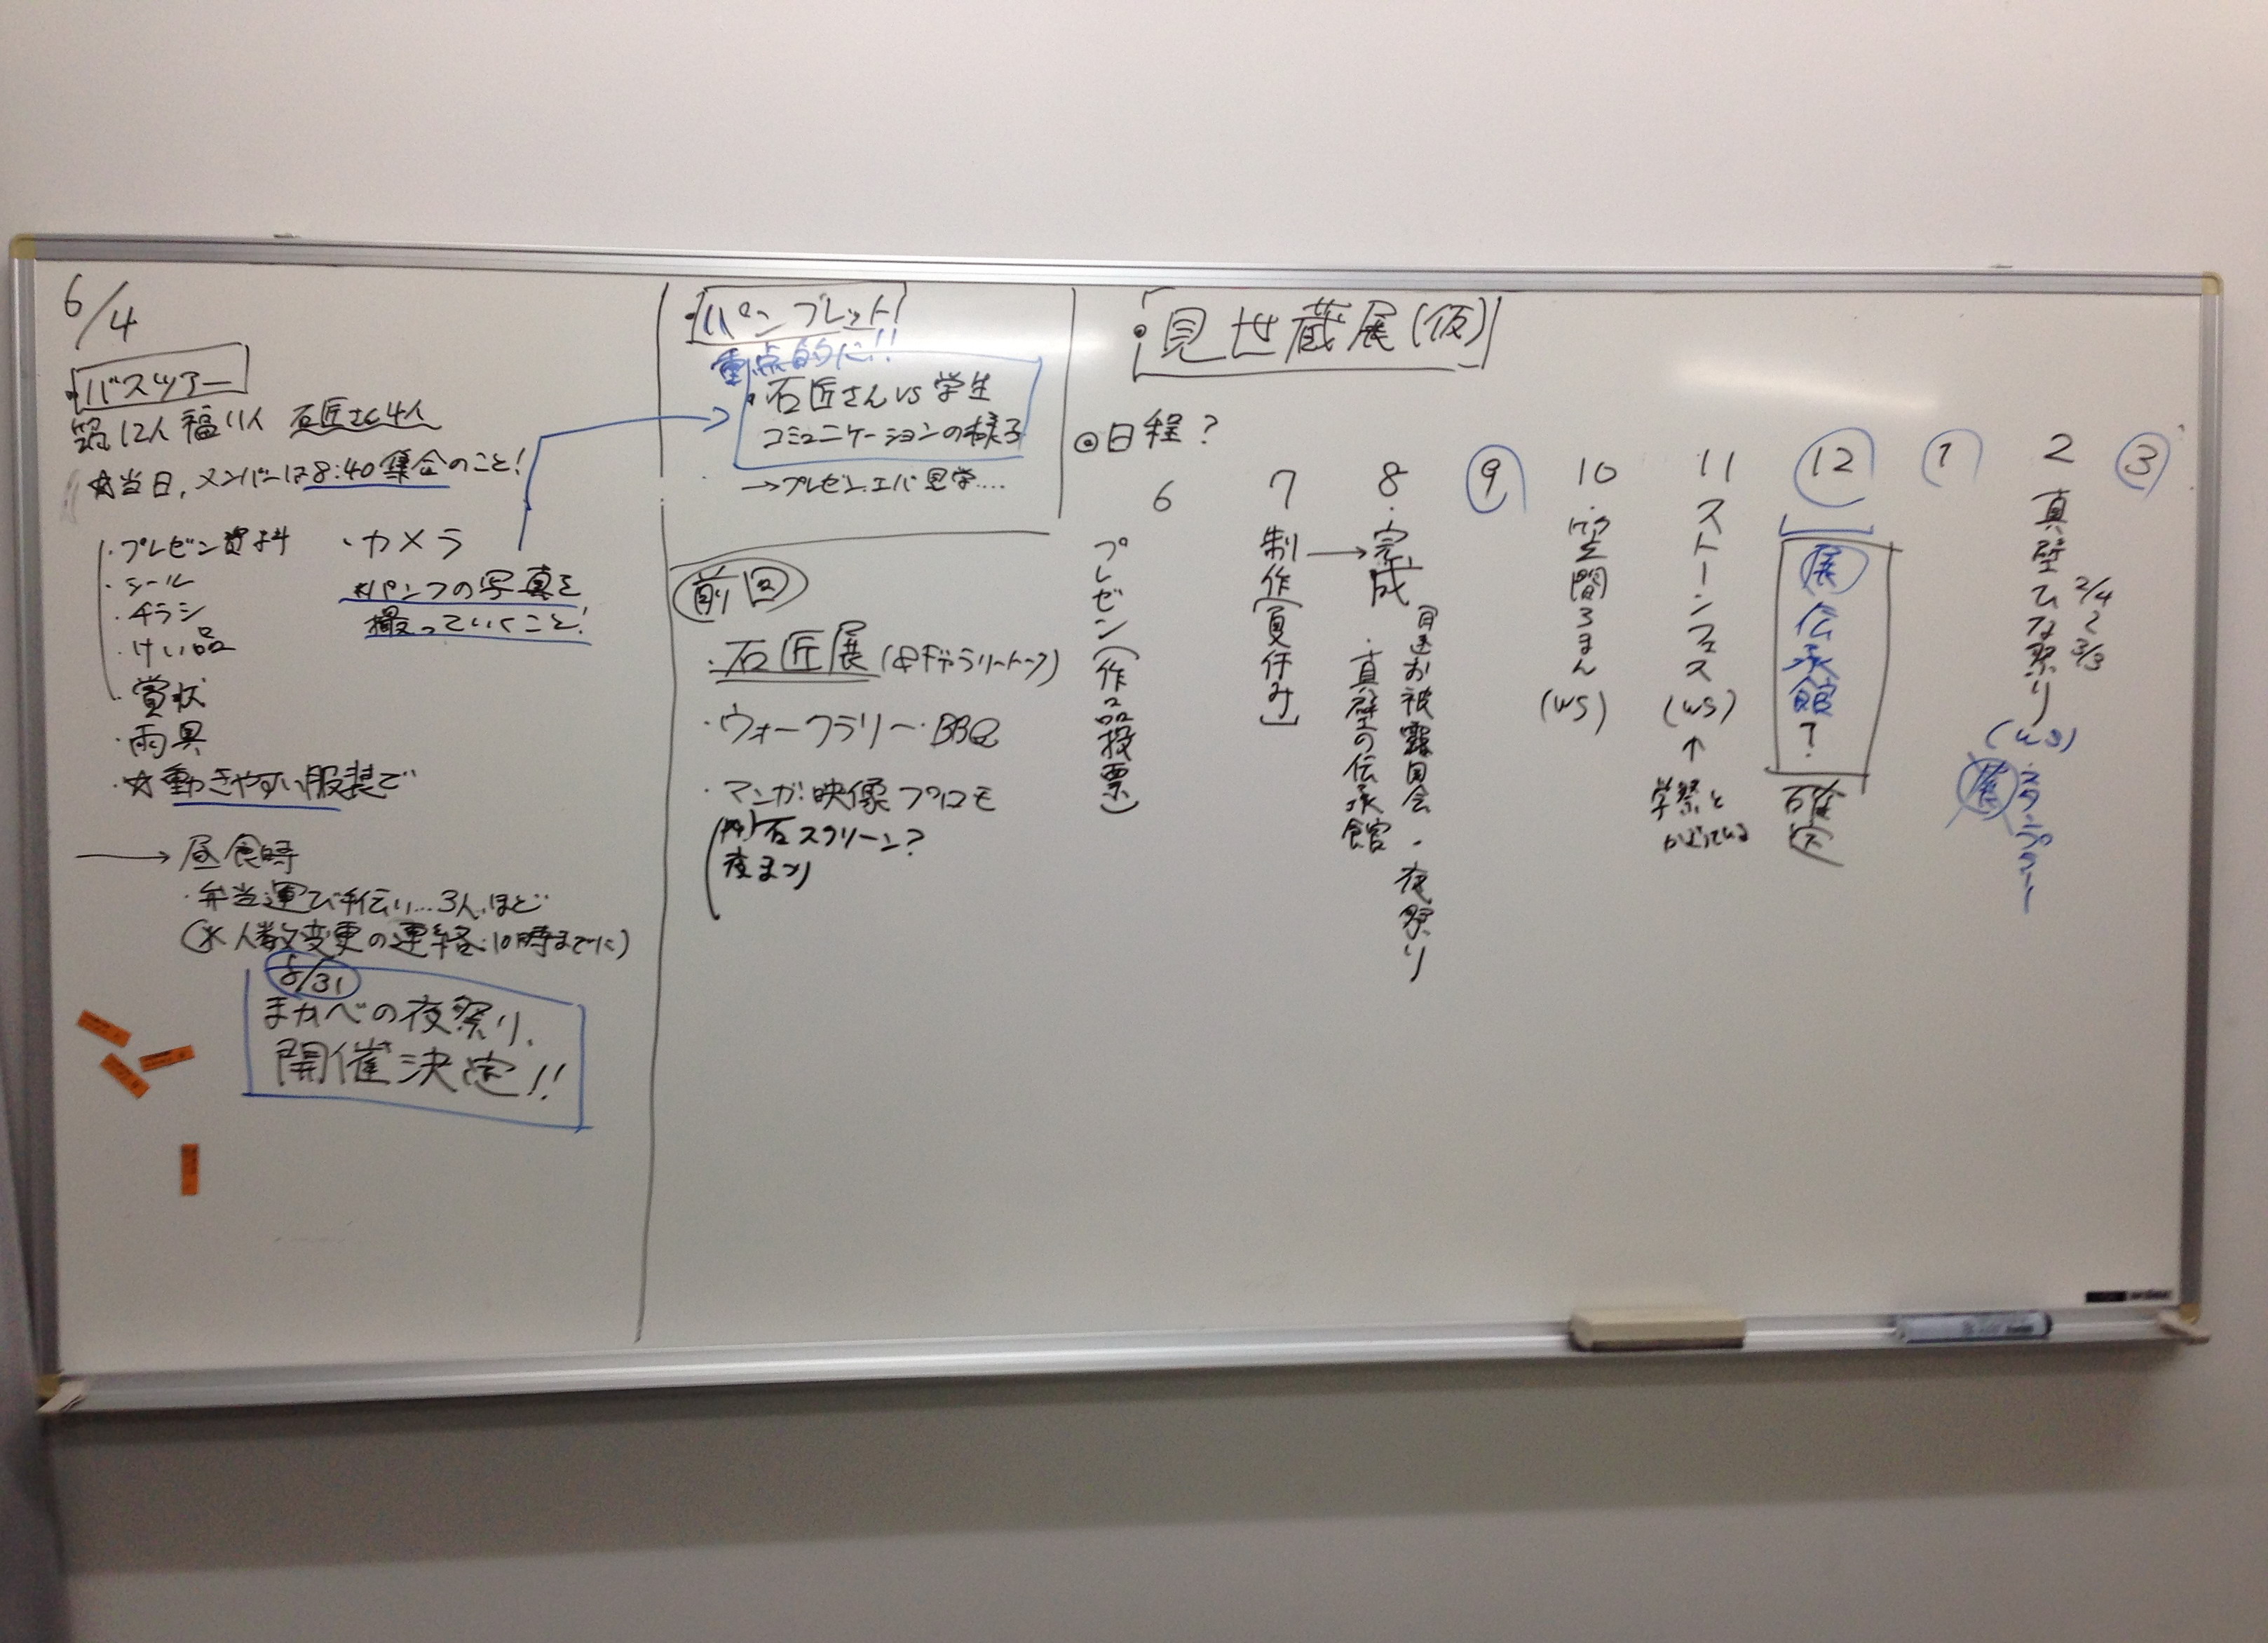 6/4
・バスツアー
筑12人 福11人 石匠さん4人
☆当日、メンバーは8:40集合のこと!
・プレゼン資料
・シール
・チラシ
・けい品
・賞状
・雨具
・☆動きやすい服装で
・カメラ
*パンフの写真を
撮っていくこと!
→昼食時
・弁当運び手伝い…3人ほど
(※人数変更の連絡:10時までに)
8/31
まかべの夜祭り、
開催決定!!
・パンフレット
重点的に!!
・石匠さんvs学生
コミュニケーションの様子
→プレゼン、エバ見学….
前回
・石匠展(&ギャラリートーク)
・ウォークラリー・BBQ
・マンガ・映像プロモ
石スクリーン?
夜まつり
・見世蔵展(仮)
◎日程?
6
プレゼン(作品投票)
7
制作(夏休み)→
8
・完成
お披露目会・夜祭り
・真壁の伝承館
9
10
空間ろまん
(WS)
11
ストーンフェス
(WS)
↑
学祭と
かぶっている
12
展
伝承館
?
確定
1
2
真壁ひな祭り
2/4
~
3/3
(WS)
展
スタンプラリー
3